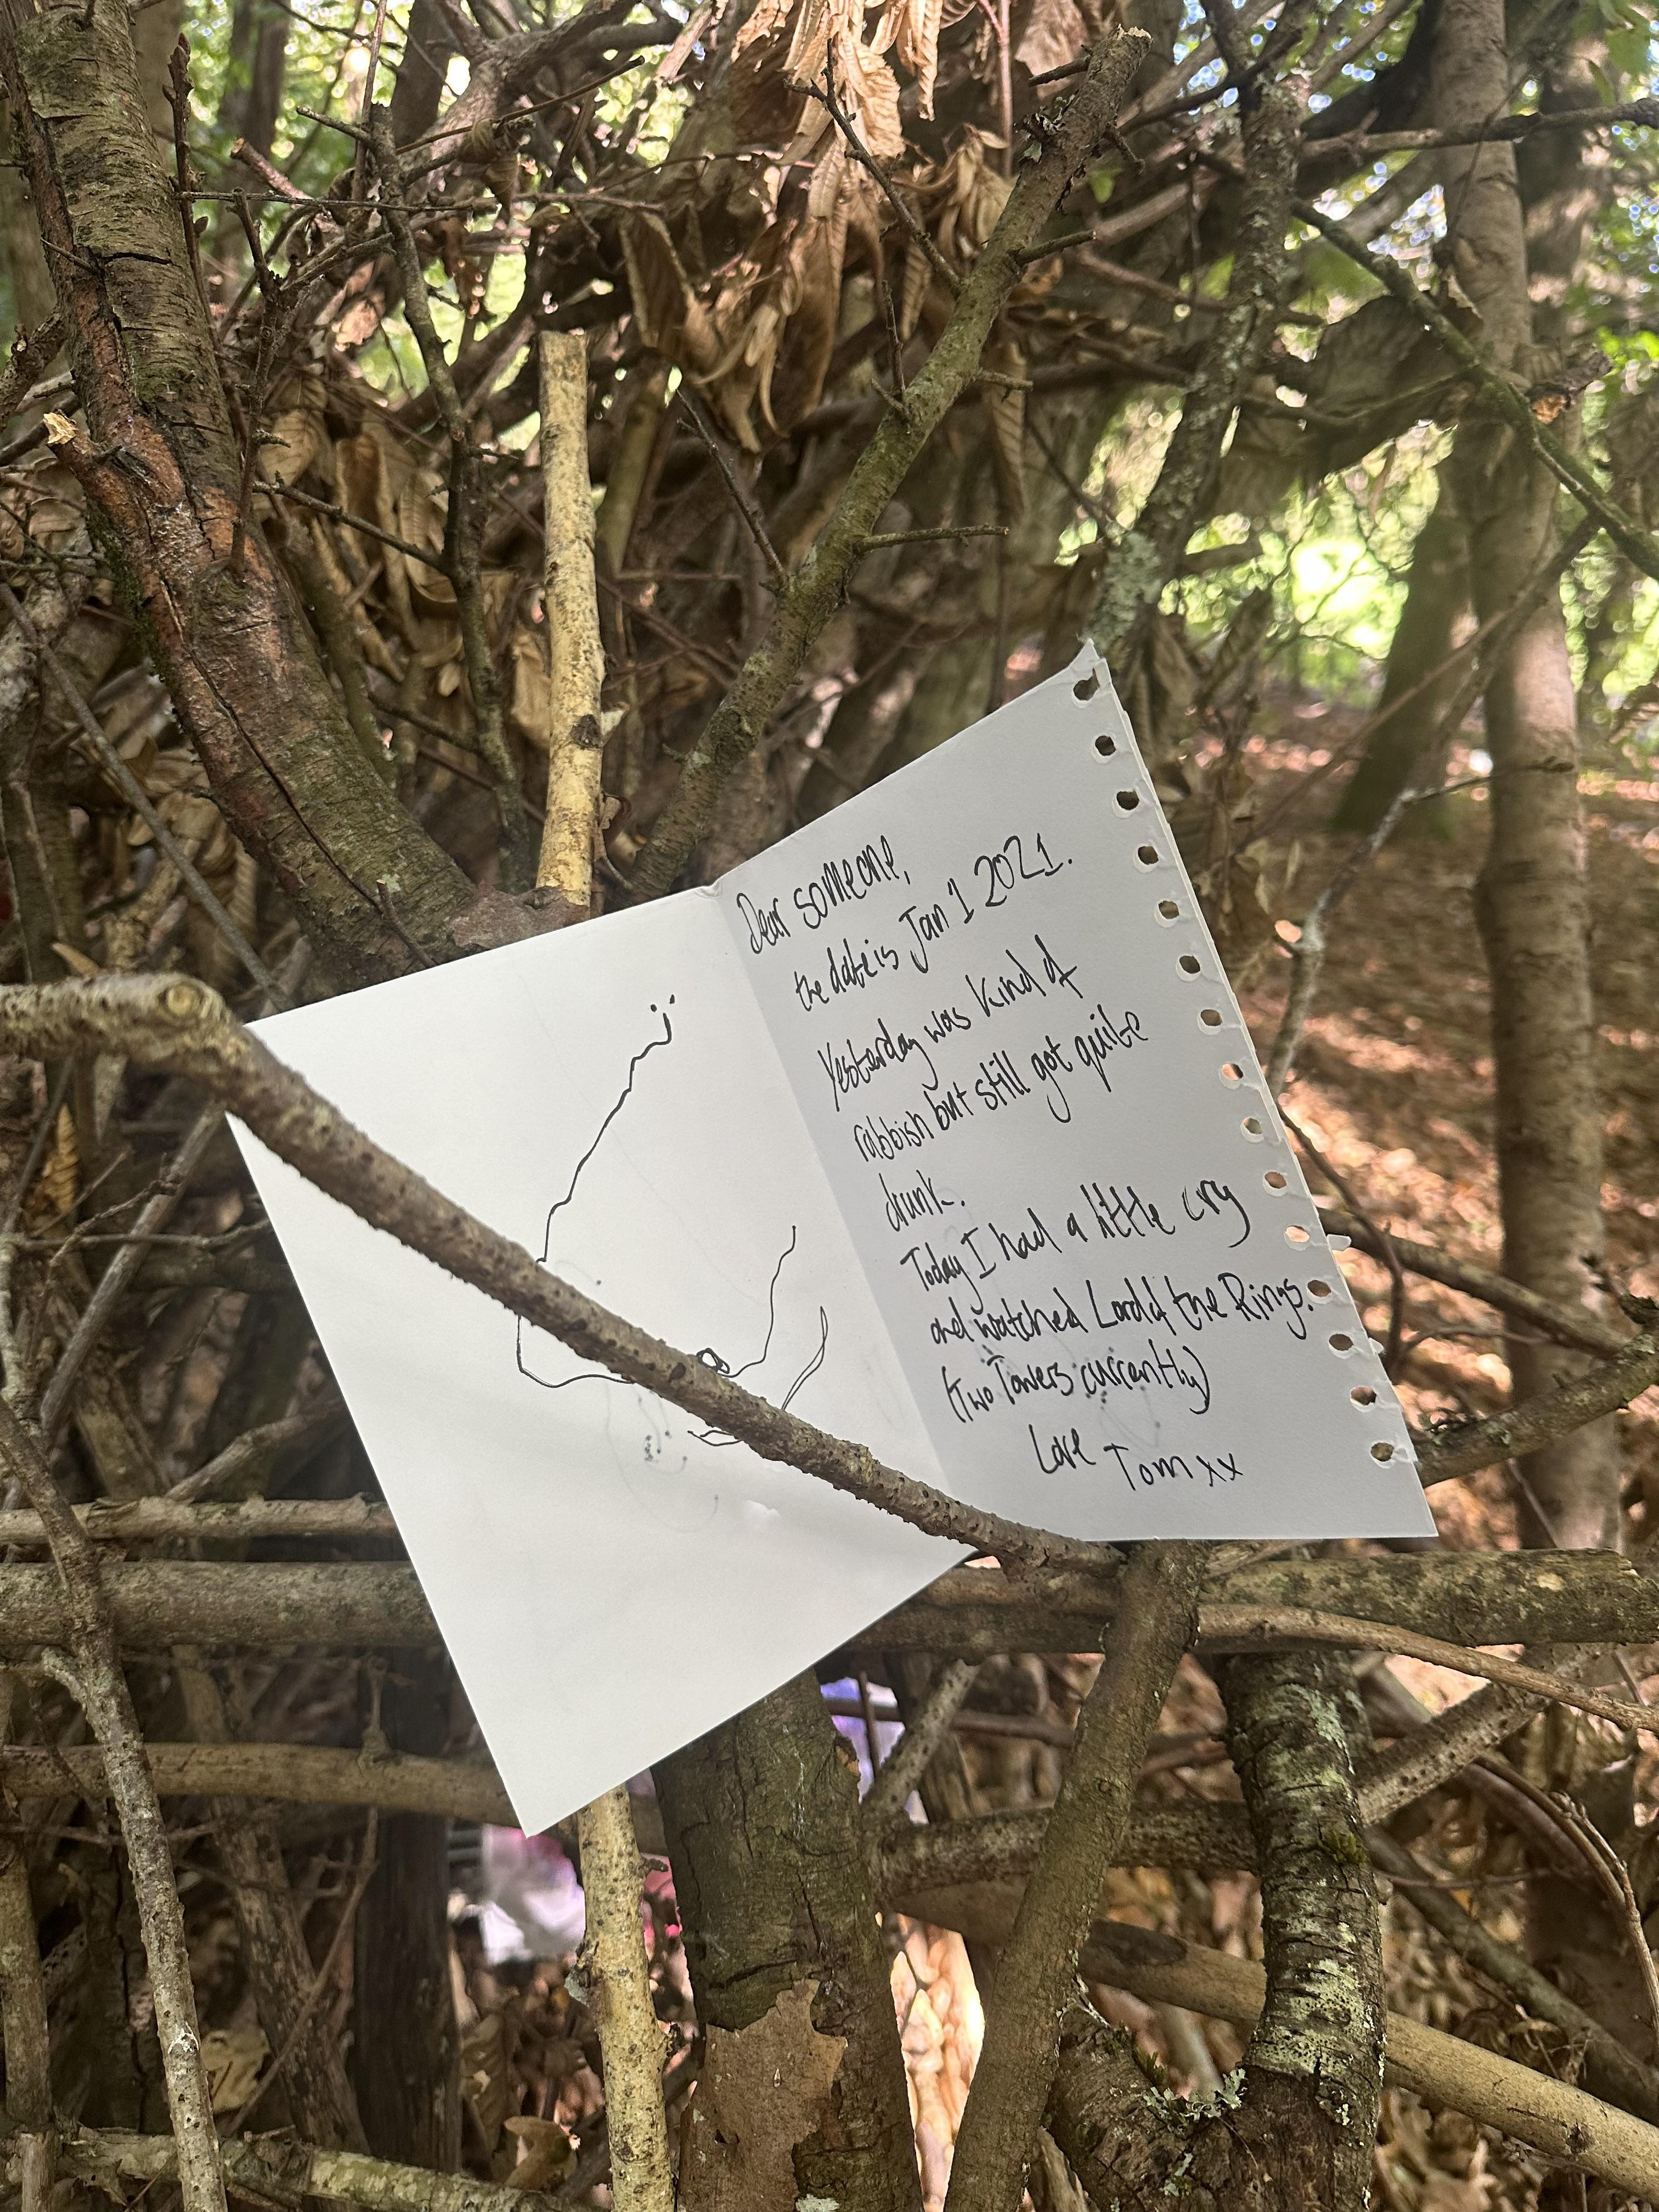 Dear someone,
the date is Jan 1 2021.
Yesterday was kind of
rubbish but still got quite
drunk.
Today I had a little cry
and watched Lord of the Rings.
(Two Towers currently)
Love Tom xx